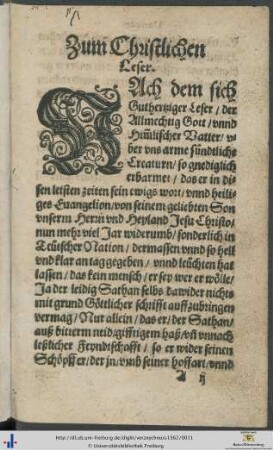 Zum Christlichen
Leser.
NAch dem sich
Guthertziger Leser / der
Allmechtig Gott / vnnd
Himlischer Vatter / v̈
ber vns arme sündtliche
Creaturn / so gnediglich
erbarmet / das er in di-
sen letsten zeiten sein ewigs wort / vnnd heili-
ges Euangelion / von seinem geliebten Son
vnserm Herrn vnd Heyland Jesu Christo /
nun mehr viel Jar widerumb / sonderlich in
Teütscher Nation / dermassen vnnd so hell
vnd klar an tag gegeben / vnnd leüchten hat
lassen / das kein mensch / er sey wer er wölle /
Ja der leidig Sathan selbs dawider nichts
mit grund Göttlicher schrifft auffzübringen
vermag / Nur allein / das er / der Sathan /
auß bitterm neid / gifftigem haß / vñ vnnach
leßlicher Feyndtschofft / so er wider seinen
Schöpffer / der jn / vmb seiner hoffart / vnnd
A ij
© Universitätsbibliothek Freiburg